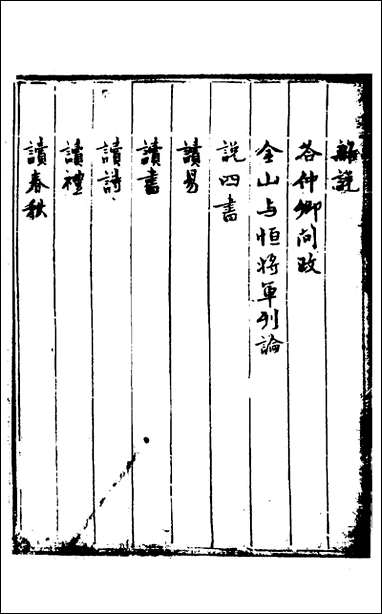 鮎說
答仲卿问政
金山与恒將軍列論
説四書
讀易
讀書
讀詩
讀禮
讀春秋